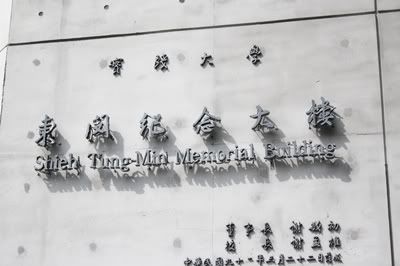 實踐大學
東閔紀念大樓
Shieh Tung-Min Memorial Building
董事長 謝
校長 謝孟雄
中華民國九十一年三月二十二日